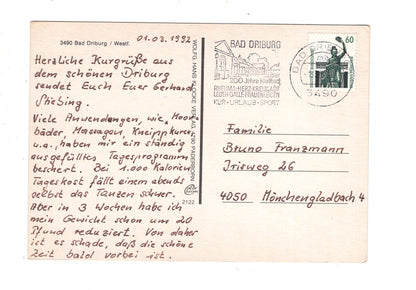 01.03.1992
3490 Bad Driburg / Westf.
Herzliche Kurgrüße aus
dem schönen Driburg
sendet Euch Euer Gerhard
Stießing.
Viele Anwendungen, wie Moor-
bäder, Massagen, Kneippkuren
u.a., haben mir ein ständig
ausgefülltes Tagesprogramm
beschert. Bei 1.000 Kalorien
Tageskost fällt einem abends
selbst das Tanzen schwer.
Aber in 3 Wochen habe ich
mein Gewicht schon um 20
Pfund reduziert. Von daher
ist es schade, daß die schöne
Zeit bald vorbei ist.
WOLFG. HANS KLOCKE VERLAG, 4790 PADERBORN
2122
BAD DRIBURG
über
200 Jahre Heilbad
RHEUMA-HERZ-KREISLAUF
LEBER-GALLE-FRAUENLEIDEN
KUR-URLAUB-SPORT
BAD DRIBURG
3490
60
Familie
Bruno Franzmann
Irisweg 26
4050 Mönchengladbach 4